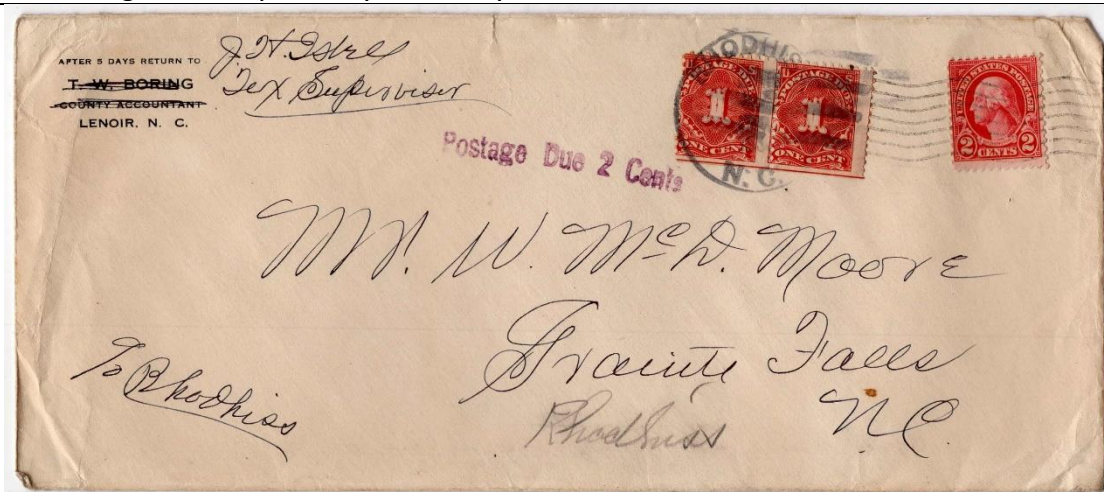 AFTER 5 DAYS RETURN TO
T. W. BORING
COUNTY ACCOUNTANT
LENOIR, N. C.
J. H.
Tax Supervisor
Postage Due 2 Cents
POSTAGE DUE
1
ONE CENT
POSTAGE DUE
1
ONE CENT
N. C.
UNITED STATES POSTAGE
2 CENTS 2
Mr. W. McD. Moore
Granite Falls
N C
Rhodhiss
Rhodhiss